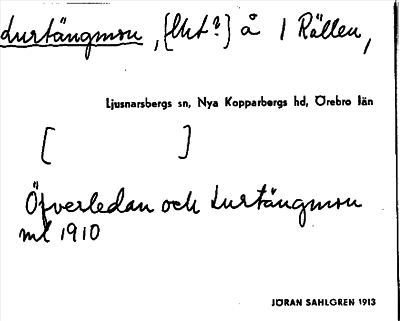 Lurtängmon, [Ukt?] å / Rällen,
Ljusnarsbergs sn, Nya Kopparbergs hd, Örebro län
[ ]
Öfverledan och Lurtängmon
ml 1910
JÖRAN SAHLGREN 1913